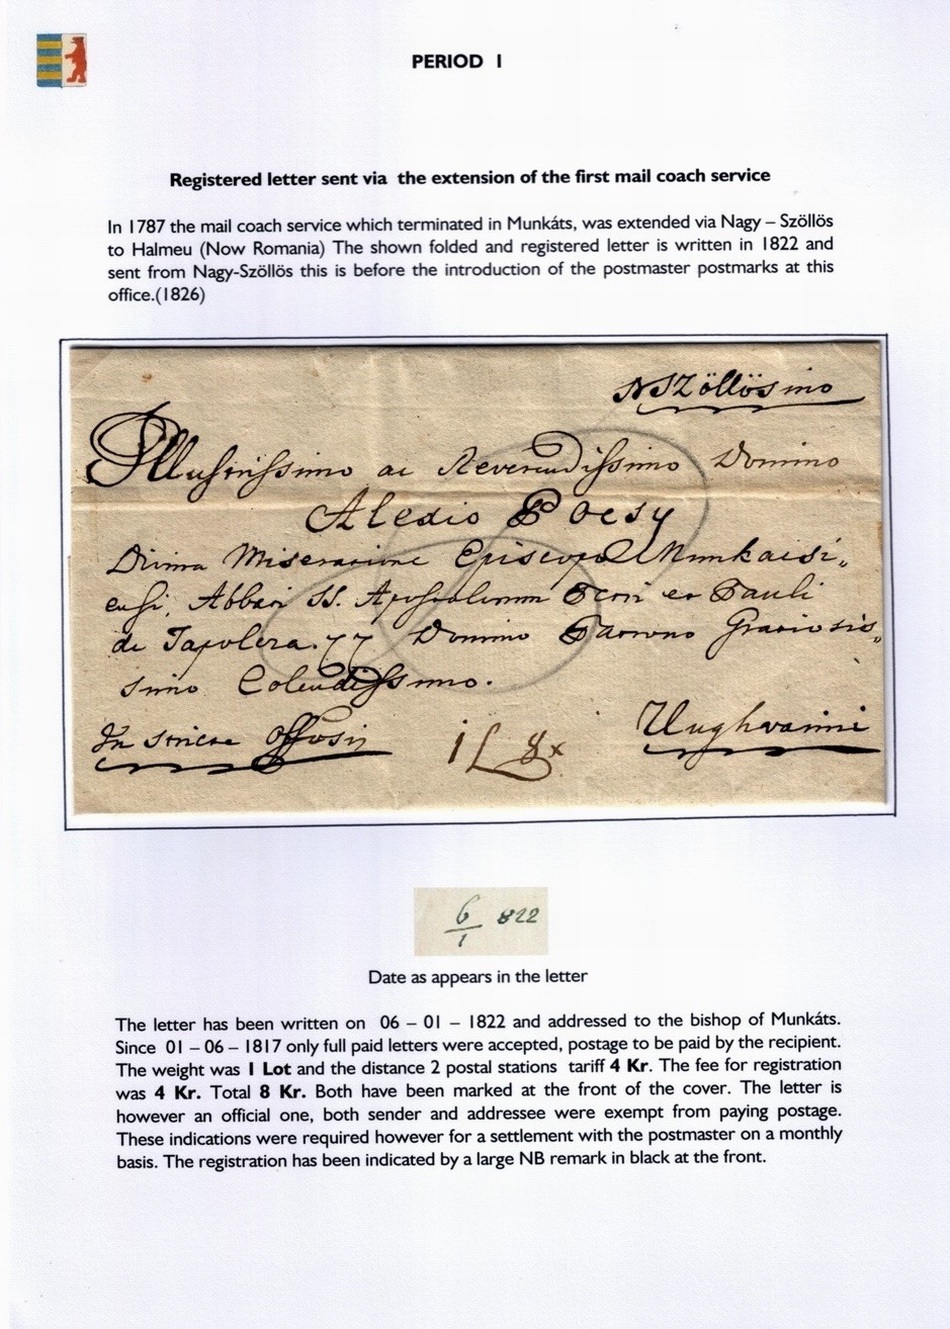 PERIOD I
Registered letter sent via the extension of the first mail coach service
In 1787 the mail coach service which terminated in Munkáts, was extended via Nagy – Szöllös
to Halmeu (Now Romania) The shown folded and registered letter is written in 1822 and
sent from Nagy-Szöllös this is before the introduction of the postmaster postmarks at this
office.(1826)
NSZöllösino
Illustrissimo ac Reverendissimo Domino
Alexio Pocsy
Divina Miseratione Episcopo Munkacsi„
ensi, Abbati SS. Apostolorum Petri et Pauli
de Tapolcza. Domino Patrono Gratiosis„
simo Colendissimo.
Unghvarini
1 L 8x
6/1 822
Date as appears in the letter
The letter has been written on 06 – 01 – 1822 and addressed to the bishop of Munkáts.
Since 01 – 06 – 1817 only full paid letters were accepted, postage to be paid by the recipient.
The weight was 1 Lot and the distance 2 postal stations tariff 4 Kr. The fee for registration
was 4 Kr. Total 8 Kr. Both have been marked at the front of the cover. The letter is
however an official one, both sender and addressee were exempt from paying postage.
These indications were required however for a settlement with the postmaster on a monthly
basis. The registration has been indicated by a large NB remark in black at the front.